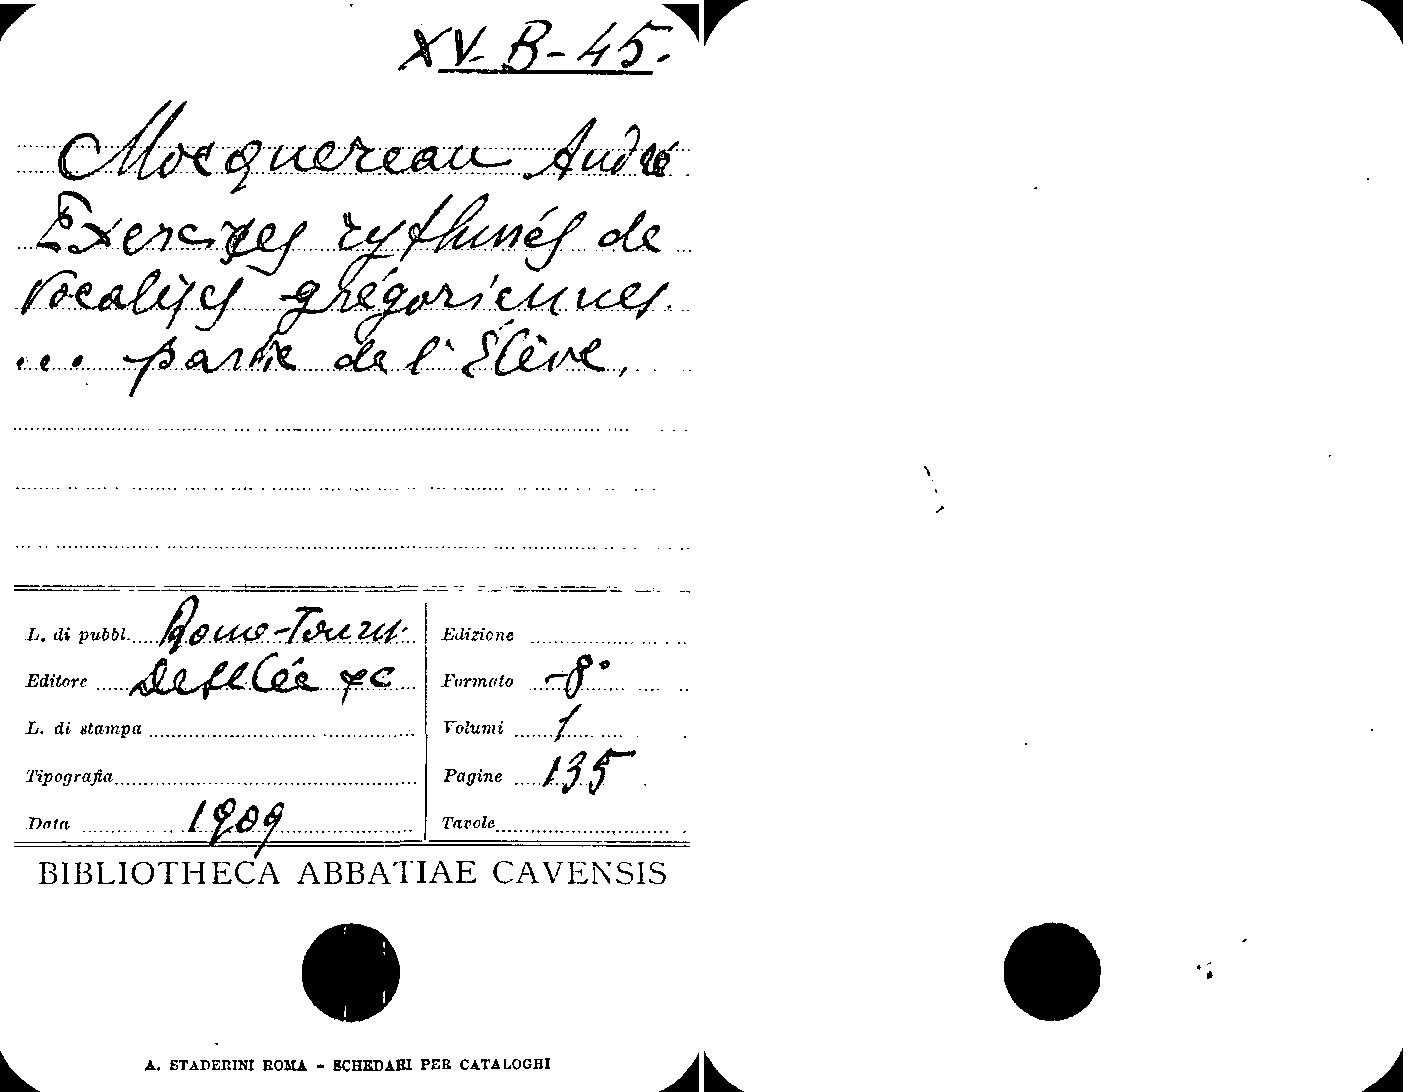 XV-B-45.
Mocquereau André
Exercices rythmés de
vocalises grégoriennes.
... partie de l'Élève.
L. di pubbl. Rome-Tournai
Edizione
Editore Desclée &C
Formato -8°
L. di stampa
Volumi 1
Tipografia
Pagine 135
Data 1909
Tavole
BIBLIOTHECA ABBATIAE CAVENSIS
A. STADERINI ROMA - SCHEDARI PER CATALOGHI